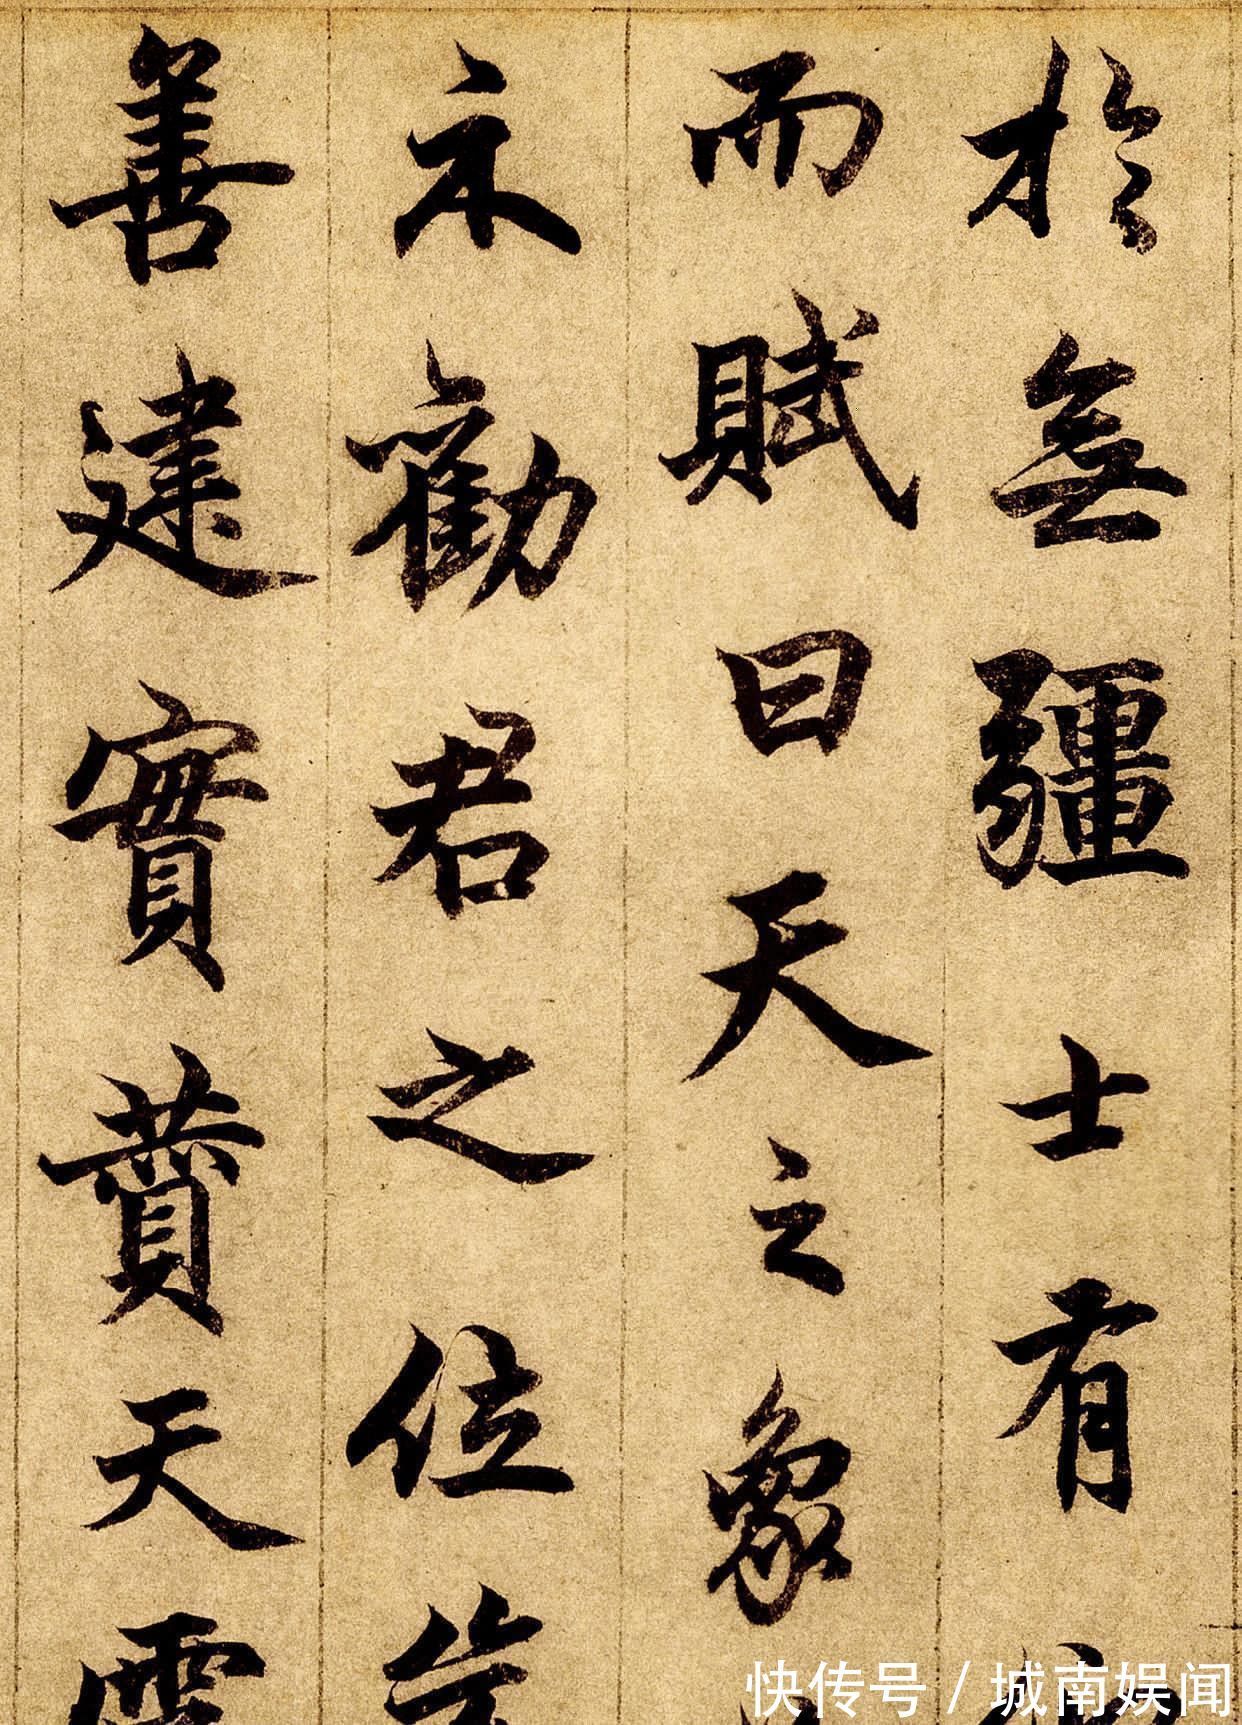 於無疆士有
而賦曰天之象
示勸君之位
善建實賁天
快传号/城南娱闻